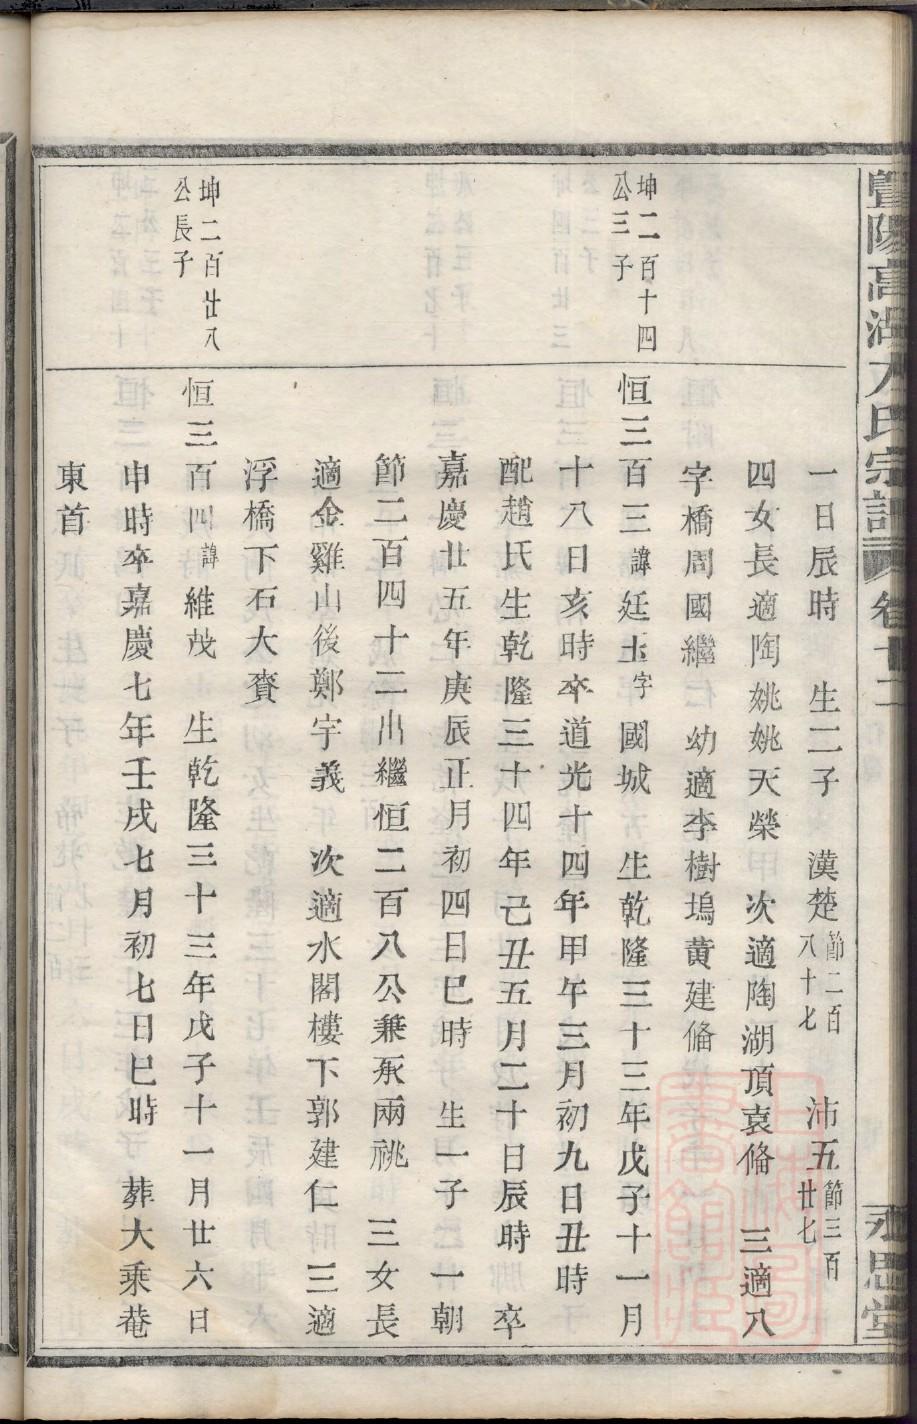 暨陽高湖方氏宗譜 卷十二 永思堂
一日辰時 生二子 漢楚節二百八十七 沛五節三百廿七
四女長適陶姚姚天榮 次適陶湖頂袁俻 三適八
字橋周國繼仁 幼適李樹塢黃建俻
坤二百十四
公三子
恒三百三諱廷玉字國城 生乾隆三十三年戊子十一月
十八日亥時卒道光十四年甲午三月初九日丑時
配趙氏生乾隆三十四年己丑五月二十日辰時 卒
嘉慶廿五年庚辰正月初四日巳時 生一子 一朝
節二百四十二出繼恒二百八公兼承兩祧 三女長
適金雞山後鄭宇義 次適水閣樓下郭建仁 三適
浮橋下石大賚
坤二百廿八
公長子
恒三百四諱維茂 生乾隆三十三年戊子十一月廿六日
申時卒嘉慶七年壬戌七月初七日巳時 葬大乘菴
東首